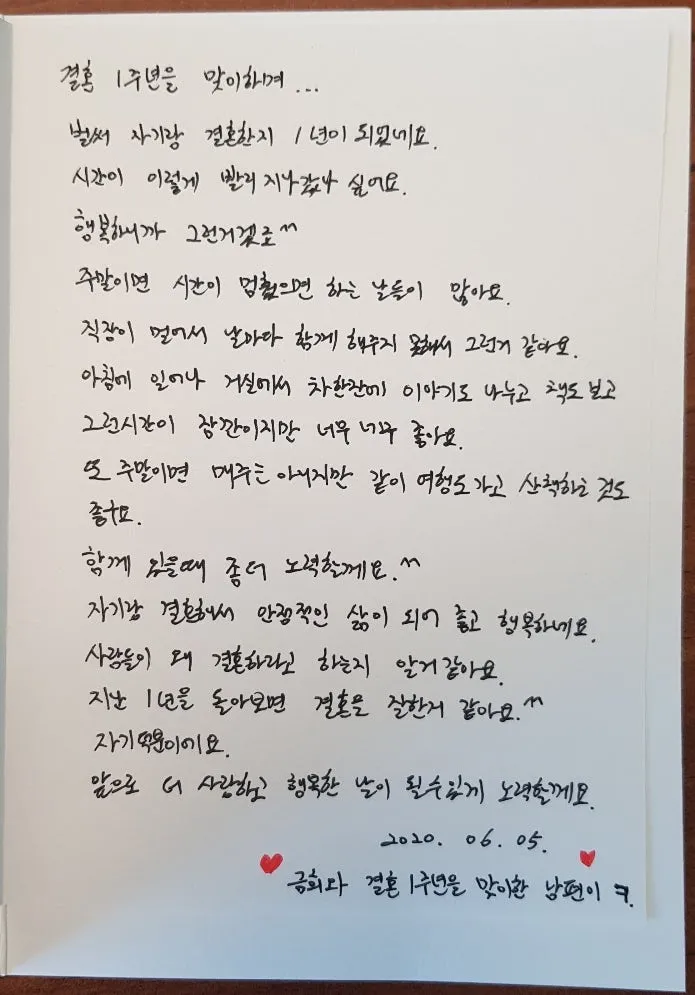 결혼 1주년을 맞이하여...
벌써 자기랑 결혼한지 1년이 되었네요.
시간이 이렇게 빨리 지나갔나 싶어요.
행복하니까 그런거겠죠^^
주말이면 시간이 멈췄으면 하는 날들이 많아요.
직장이 멀어서 날마다 함께 해주지 못해서 그런거 같아요.
아침에 일어나 거실에서 차한잔에 이야기도 나누고 책도 보고
그런시간이 잠깐이지만 너무 너무 좋아요.
또 주말이면 매주는 아니지만 같이 여행도 가고 산책하는 것도
좋구요.
함께 있을때 좀 더 노력할께요.^^
자기랑 결혼해서 안정적인 삶이 되어 좋고 행복하네요.
사람들이 왜 결혼하라고 하는지 알거 같아요.
지난 1년을 돌아보면 결혼을 잘한거 같아요.^^
자기 때문이에요.
앞으로 더 사랑하고 행복한 날이 될수있게 노력할께요.
2020. 06. 05.
금희와 결혼 1주년을 맞이한 남편이